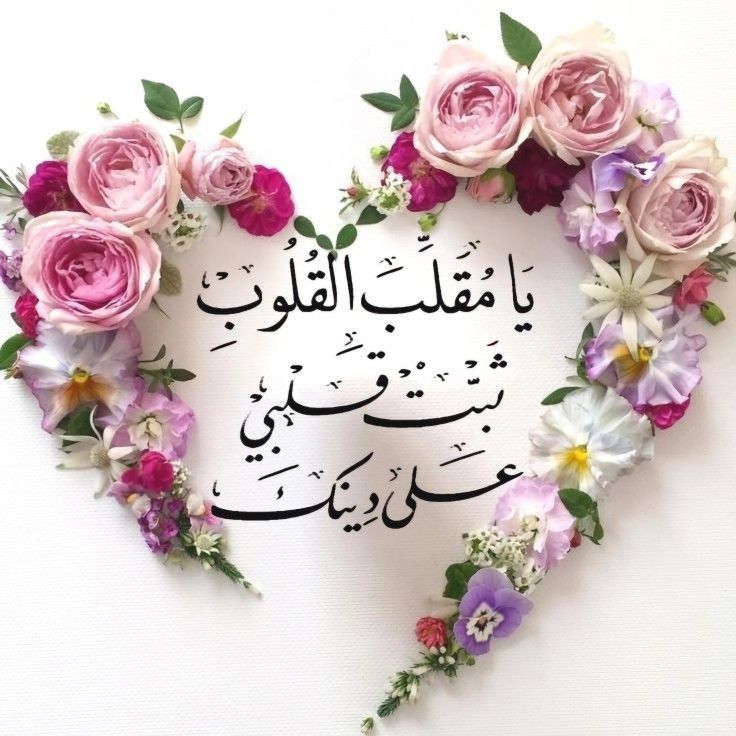 يَا مُقَلِّبَ القُلُوبِ
ثَبِّتْ قَلبي
عَلى دِينِكَ